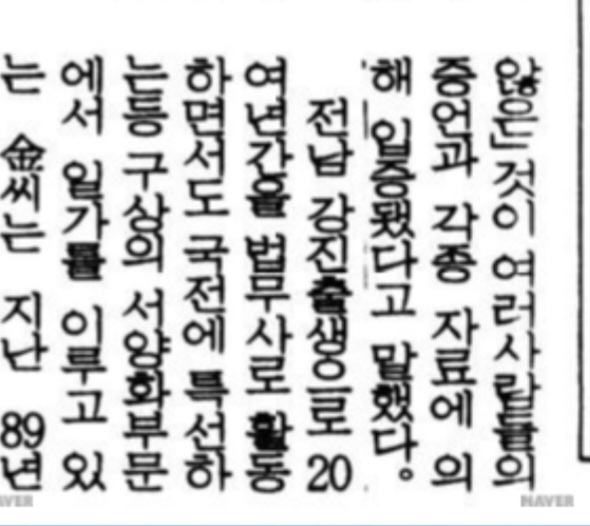 않은」것이 여러사람들의
증언과 각종 자료에 의
해 입증됐다고 말했다。
전남 강진출생으로 20
여년간을 법무사로 활동
하면서도 국전에 특선하
는등 구상의 서양화부문
에서 일가를 이루고 있
는 金씨는 지난 89년
NAVER
NAVER